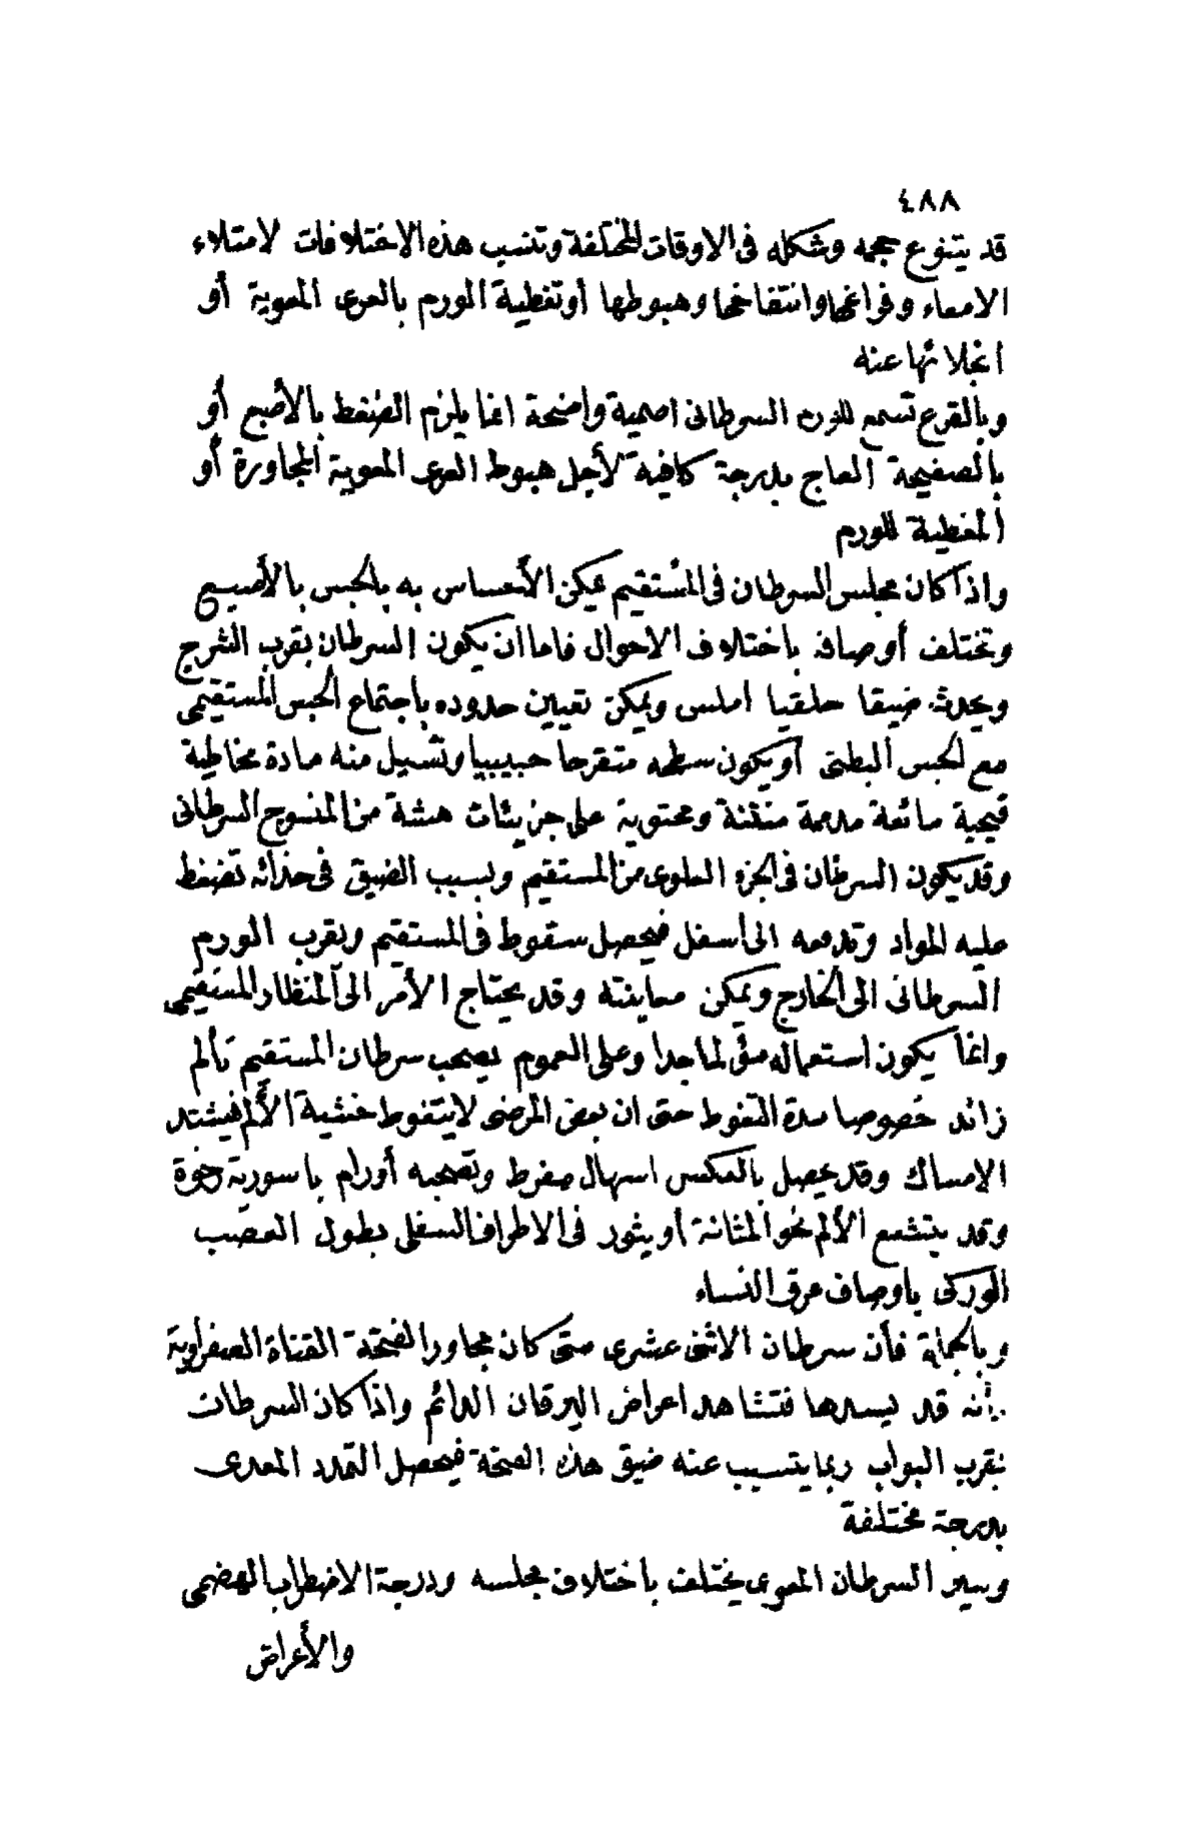 ٤٨٨
قد يتنوع حجمه وشكله فى الاوقات المختلفة وتنسب هذه الاختلافات لامتلاء
الامعاء وفراغها وانتفاخها وهبوطها أو تغطية الورم بالعرى المعوية أو
انجلائها عنه
وبالقرع تسمع للورم السرطانى اصمية واضحة انما يلزم الضغط بالأصبع أو
بالصفيحة العاج بدرجة كافية لأجل هبوط العرى المعوية المجاورة أو
المغطية للورم
واذا كان مجلس السرطان فى المستقيم يمكن الأحساس به بالجس بالأصبع
وتختلف أوصافه باختلاف الاحوال فاما ان يكون السرطان بقرب الشرج
ويحدث ضيقا حلقيا املس ويمكن تعيين حدوده باجتماع الجس المستقيمى
مع الجس البطنى أو يكون سطحه متقرحا حبيبيا وتسيل منه مادة مخاطية
قيحية مائعة مدممة منتنة ومحتوية على جزيئات هشة من المنسوج السرطانى
وقد يكون السرطان فى الجزء العلوى من المستقيم وبسبب الضيق فى حذائه تضغط
عليه المواد وتدفعه الى اسفل فيحصل سقوط فى المستقيم ويقرب الورم
السرطانى الى الخارج ويمكن معاينته وقد يحتاج الأمر الى المنظار المستقيمى
وانما يكون استعماله مؤلما جدا وعلى العموم يصحب سرطان المستقيم تألم
زائد خصوصا مدة التغوط حتى ان بعض المرضى لا يتغوط خشية الألم فيشتد
الامساك وقد يحصل بالعكس اسهال مفرط وتصحبه أورام باسورية
وقد يتشعع الألم نحو المثانة أو يثور فى الاطراف السفلى بطول العصب
الوركى باوصاف عرق النساء
وبالجملة فأن سرطان الاثنى عشرى متى كان مجاورا لفتحة القناة الصفراوية
بأنه قد يسدها فتشاهد اعراض اليرقان الدائم واذا كان السرطان
بقرب البواب ربما يتسبب عنه ضيق هذه الفتحة فيحصل التمدد المعدى
بدرجة مختلفة
وسير السرطان المعوى يختلف باختلاف مجلسه ودرجة الاضطراب الهضمى
والأعراض